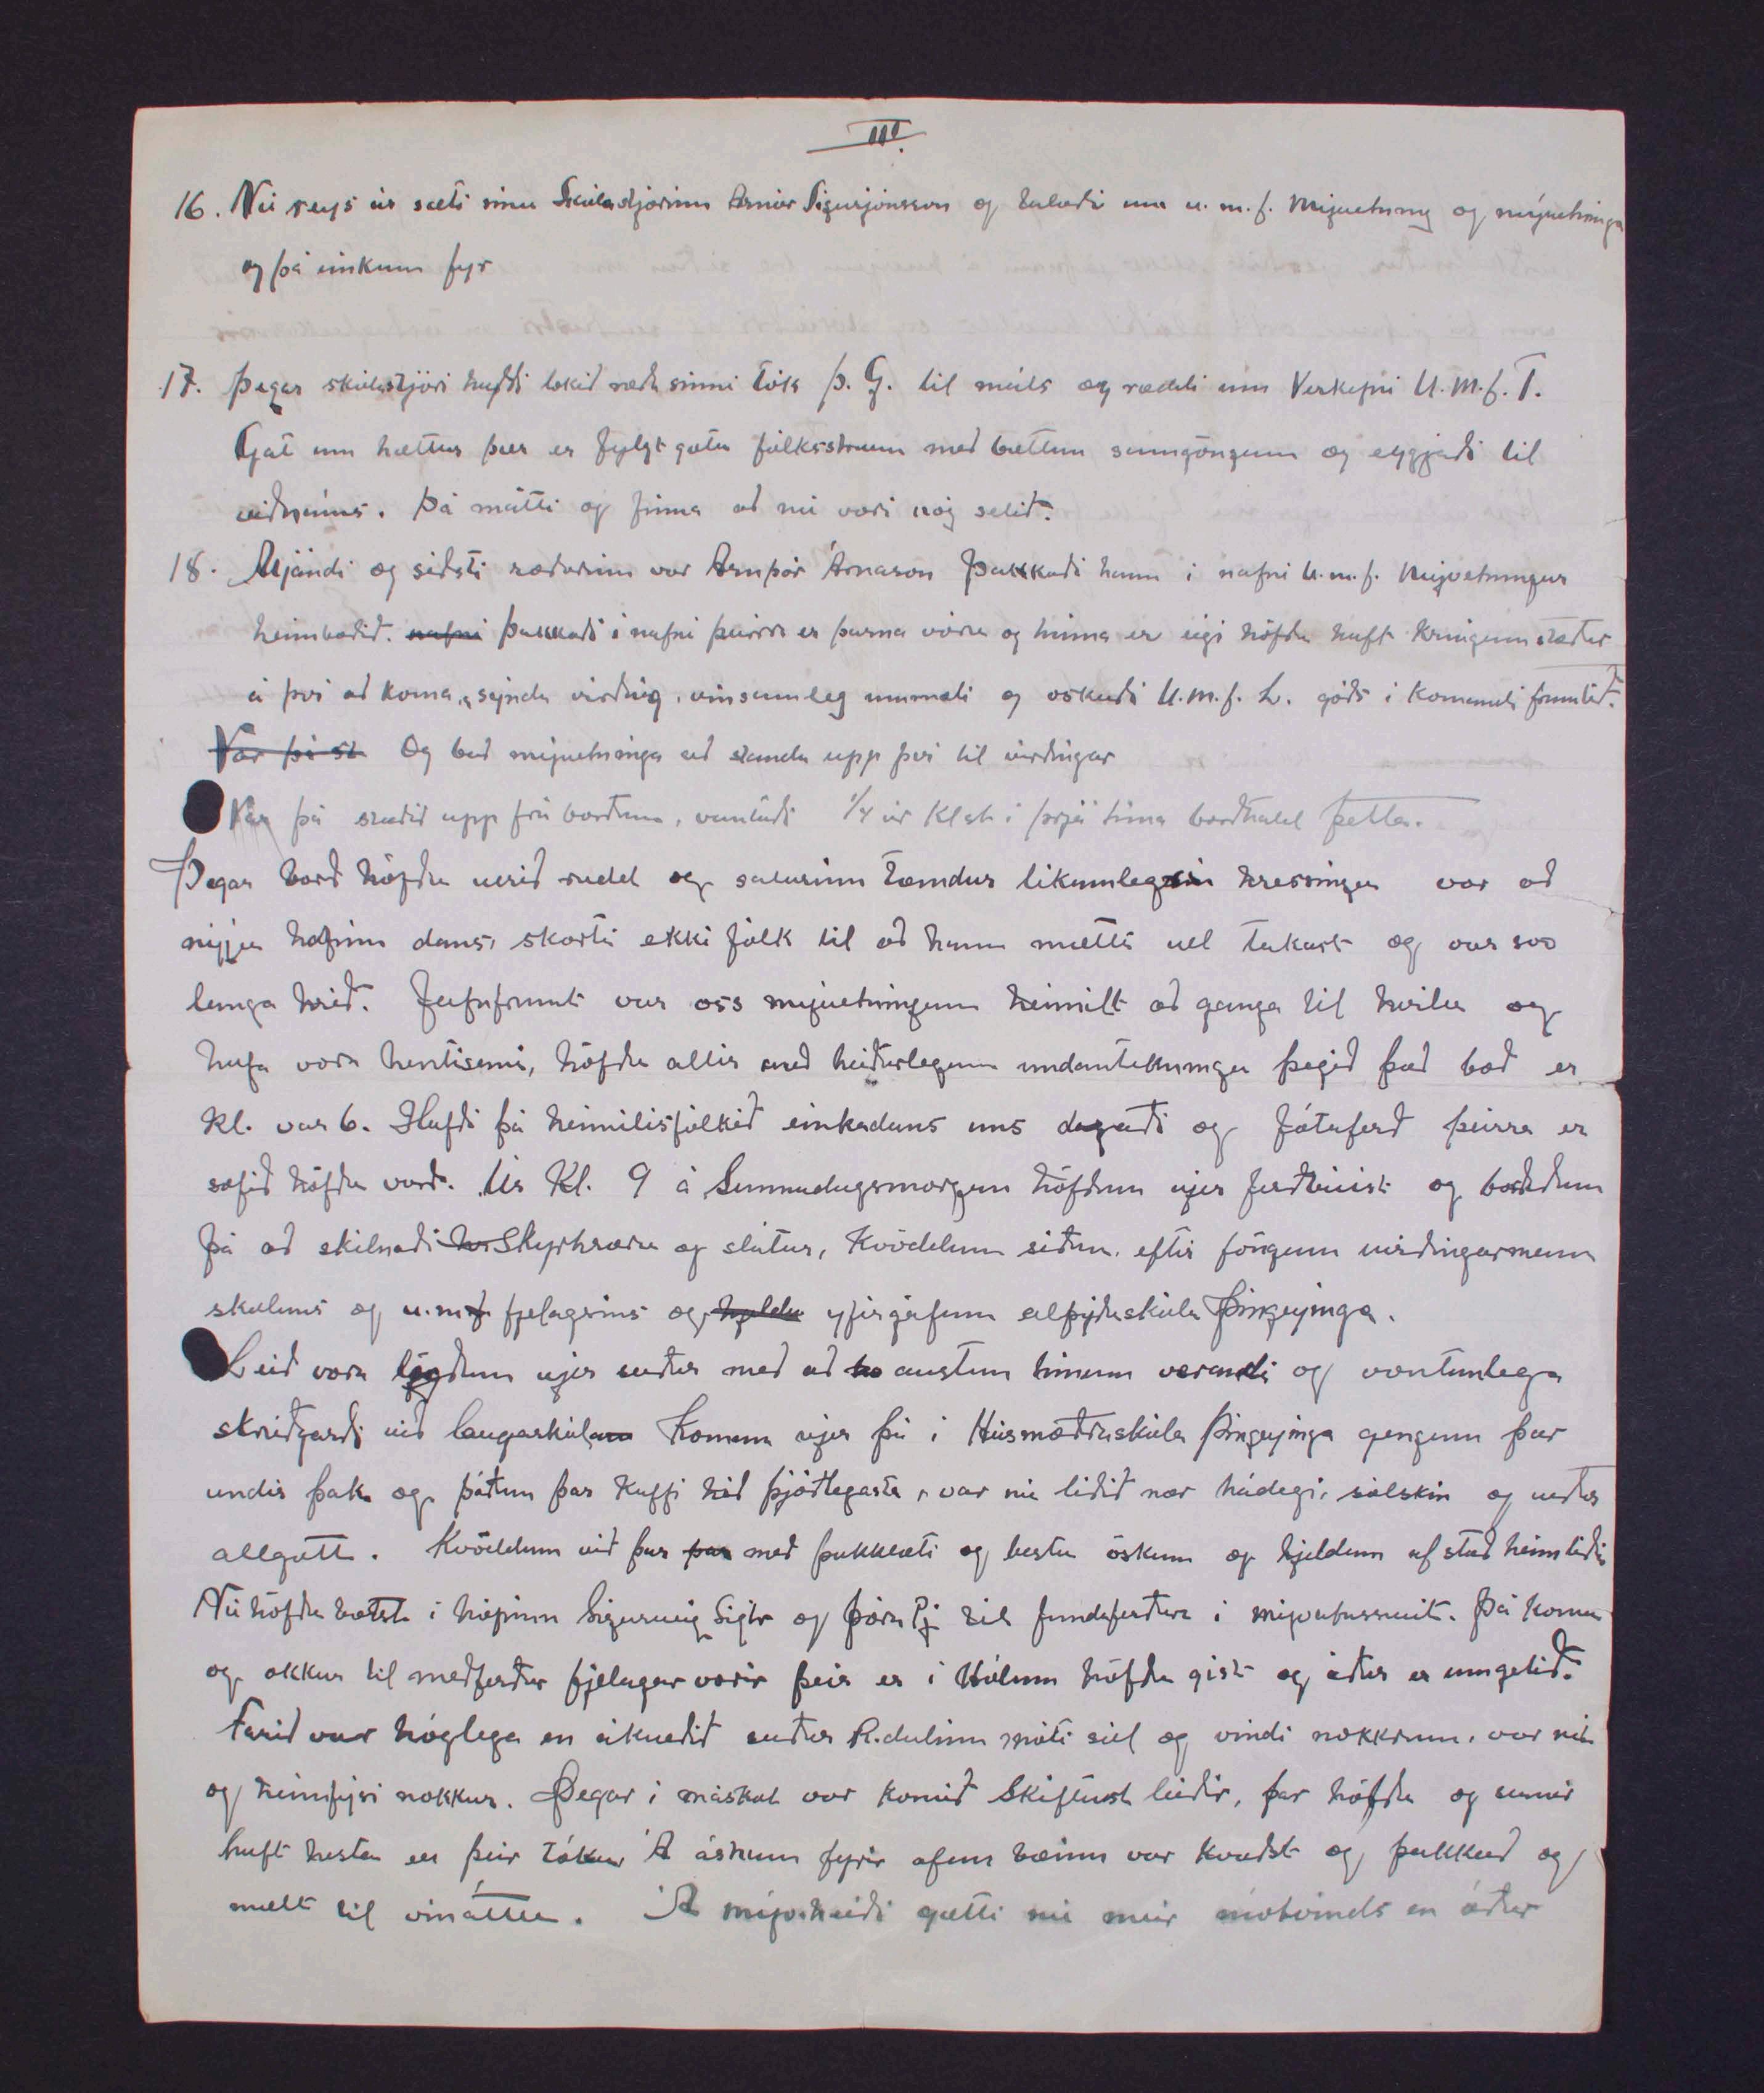 III.
16. Nú reys úr sæti sínu Skólastjórinn Arnór Sigurjónsson og talaði um u.m.f. Mývetning og mývetninga
og þá einkum fyr
17. Þegar skólastjóri hafði lokið ræðu sinni tók Þ. G. til máls og ræddi um Verkefni U.M.f. I.
Gat um hættur þær er fylgt gætu fólksstraum með bættum samgöngum og eggjaði til
viðnáms. Þá mátti og finna að nú væri nóg setið.
18. Átjándi og síðsti ræðurinn var Arnþór Árnason Þakkaði hann í nafni U.m.f. Mývetningur
heimboðið. nafni Þakkaði í nafni þeirra er þarna vóru og hinna er eigi höfðu haft kringumstæður
á því að koma, sýnda virðing, vinsamleg ummæli og óskaði U.M.f. L. góðs í komandi framtíð.
Var þá st Og bað mývetninga að standa upp því til virðingar
Var þá staðið upp frá borðum, vantaði 1/4 úr Klst í þrjá tíma borðhald þetta.
Þegar borð höfðu verið rudd og salurinn tæmdur líkamlegrin hressingu var að
nýju hafinn dans, skorti ekki fólk til að hann mætti vel takast og var svo
langa hríð. Jafnframt var oss mývetningum heimilt að ganga til hvílu og
hafa vora hentisemi, höfðu allir með heiðarlegum undantekningu þegið það boð er
Kl. var 6. Hafði þá heimilisfólkið einkadans uns dagaði og fótaferð þeirra er
sofið höfðu varð. Úr Kl. 9 á Sunnudagsmorgun höfðum vjer ferðbúist og borðuðum
þá að skilnaði hr Skyrhræru og slátur, Kvöddum síðan eftir föngum virðingarmenn
skólans og u.mf fjelagsins og hjeldu yfirgáfum alþýðuskóla Þingeyinga.
Leið vora lögðum vjer suður með að ho austum hinum verandi og væntanlega
skrúðgarði við laugaskólann Komum vjer þá í Húsmæðraskóla Þingeyinga gengum þar
undir þak og þáðum þar Kaffi hið þjóðlegasta, var nú liðið nær hádegi, sólskin og veður
allgott. Kvöddum við þar þar með þakklæti og bestu óskum og hjeldum af stað heimleiðis
Nú höfðu bætst í hópinn Sigurveig Sigtr og Þóra Pj til fundaferðar í mývatnssveit. Þá komu
og okkur til meðferðar fjelagar vorir þeir er í Hólum höfðu gist og áður er umgetið.
Farið var hóglega en ákveðið suður R.dalinn móti sól og vindi nokkrum, var nú
og heimfýsi nokkur. Þegar í máskot var komið Skiftust leiðir, þar höfðu og sumir
haft hesta er þeir tóku Á ásnum fyrir ofan bæinn var kvaðst og þakkað og
mælt til vináttu. Á mýv.heiði gætti nú meir mótvinds en áður